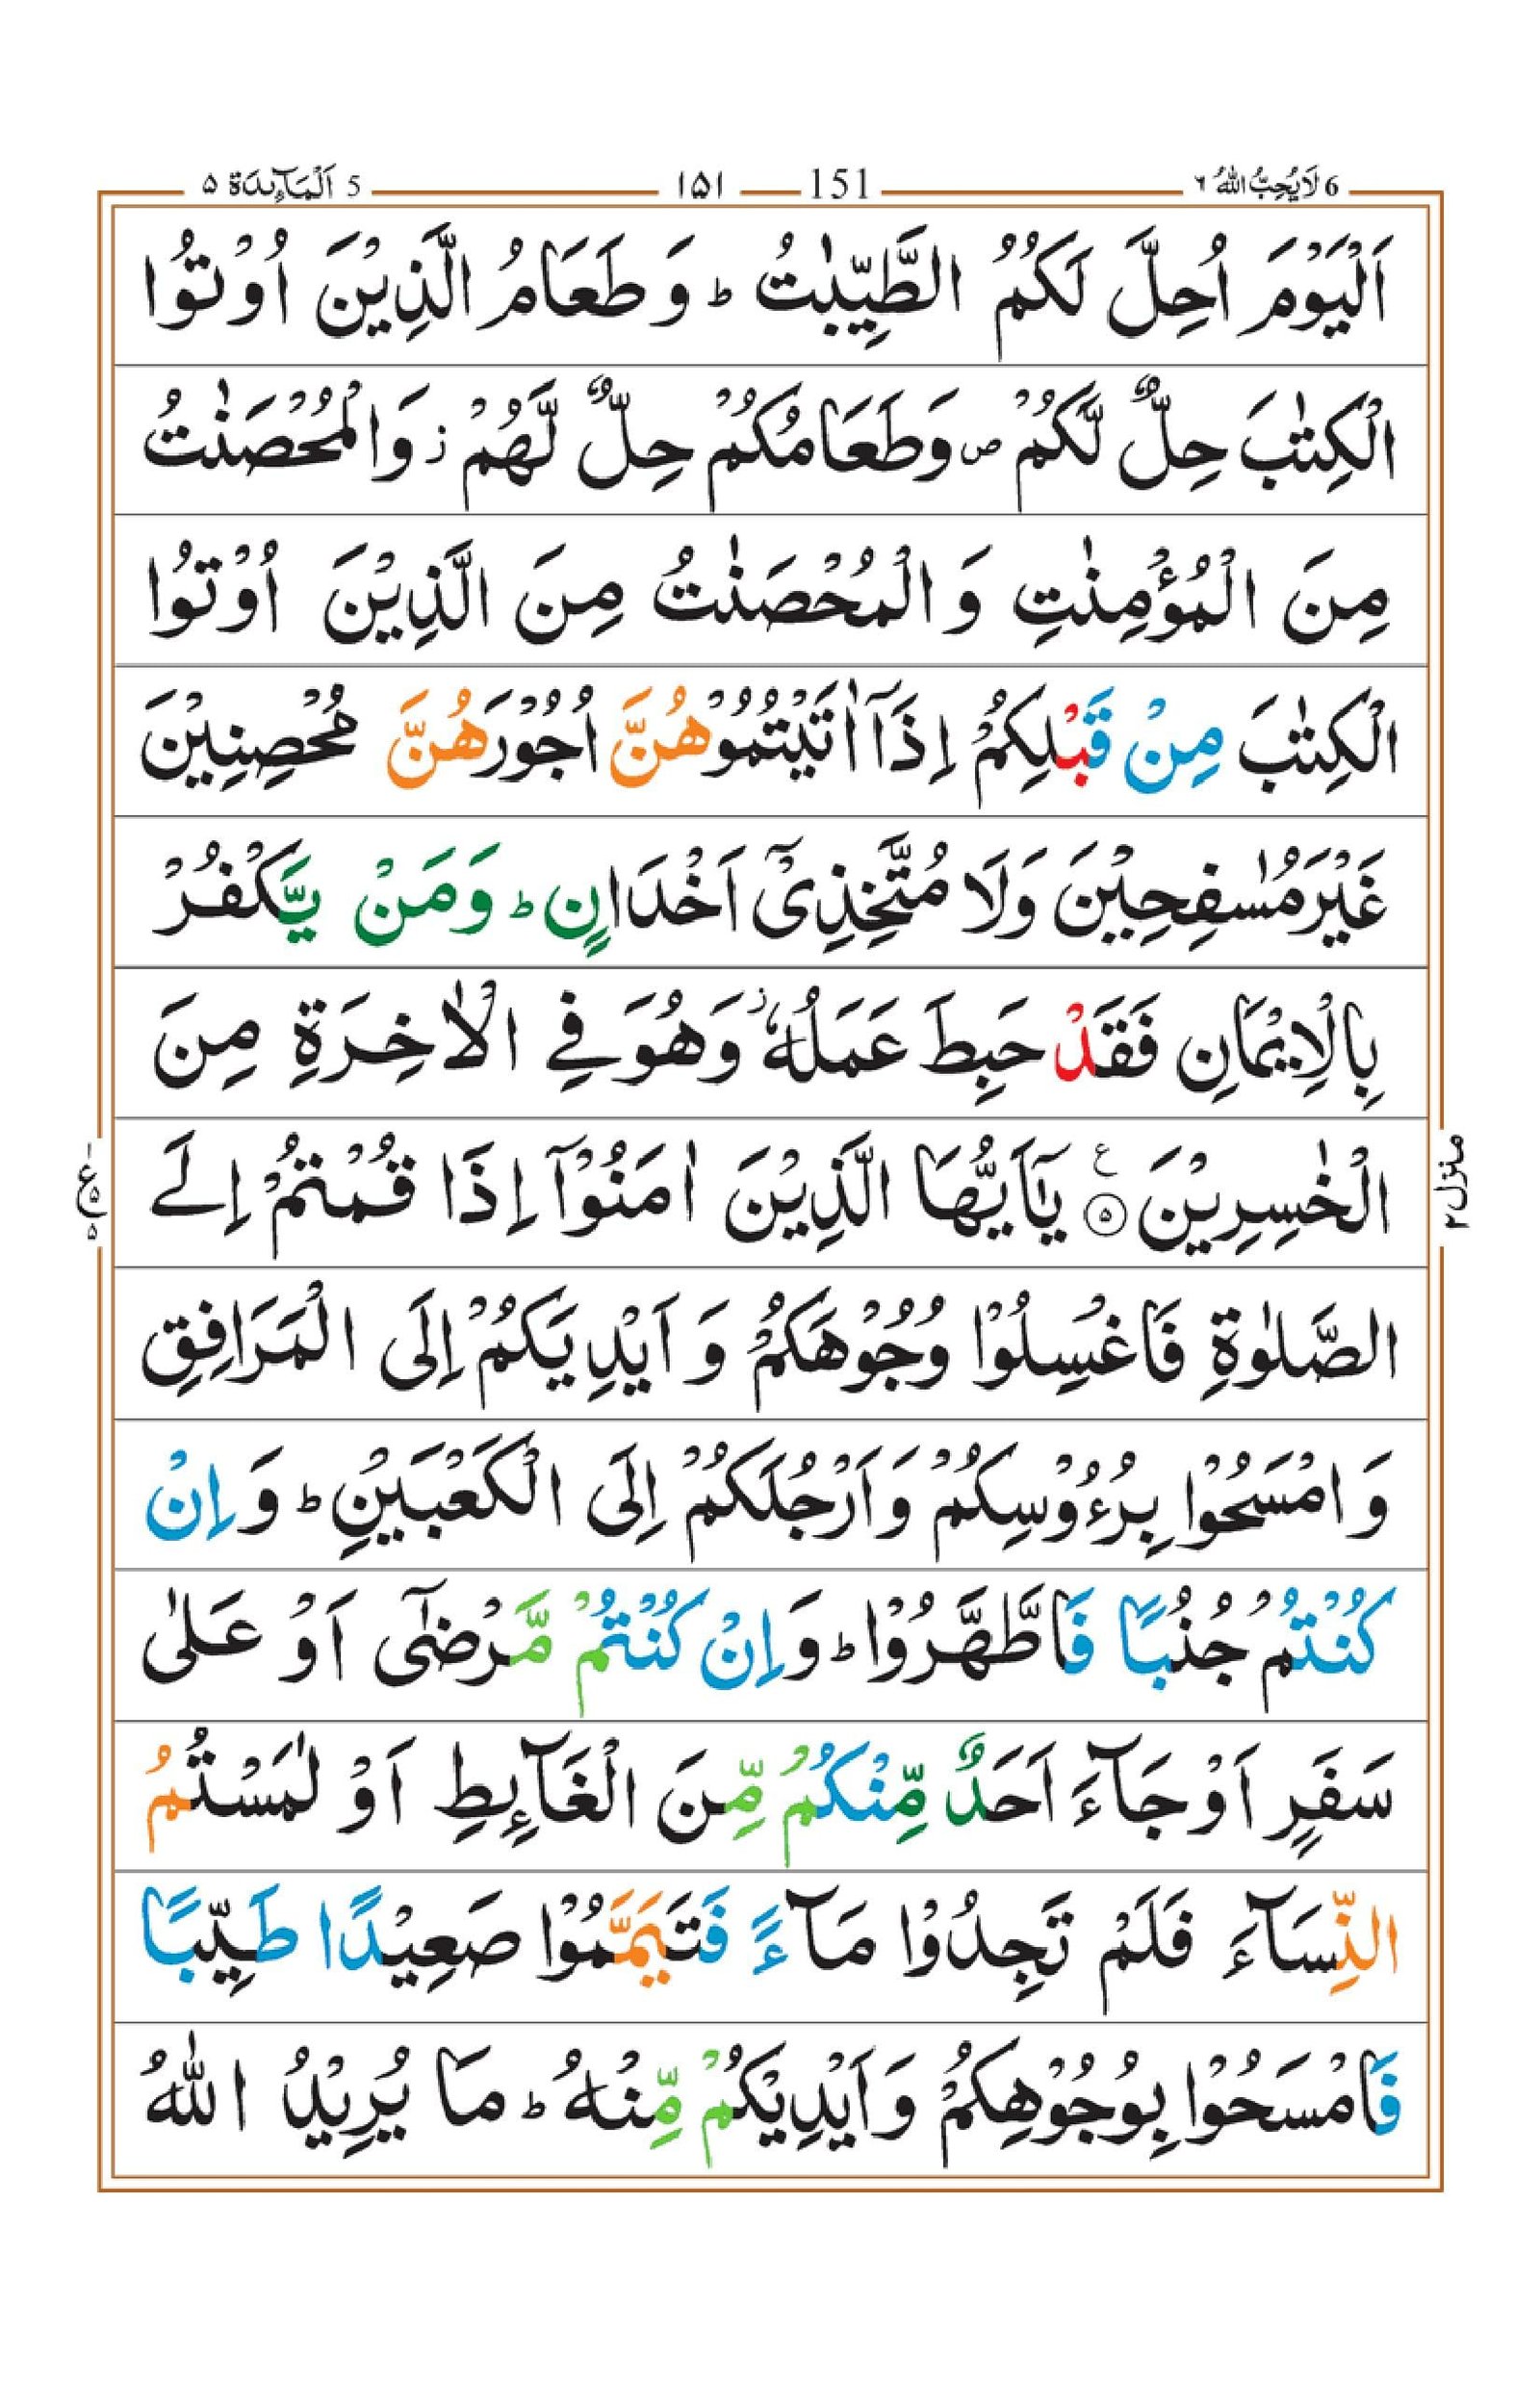 6 لَا يُحِبُّ اللهُ ٦ 151 ١٥١ 5 اَلْمَآئِدَة ٥
اَلْيَوْمَ اُحِلَّ لَكُمُ الطَّيِّبٰتُ ؕ وَ طَعَامُ الَّذِيْنَ اُوْتُوا
الْكِتٰبَ حِلٌّ لَّكُمْ ۪ وَطَعَامُكُمْ حِلٌّ لَّهُمْ ؗ وَالْمُحْصَنٰتُ
مِنَ الْمُؤْمِنٰتِ وَ الْمُحْصَنٰتُ مِنَ الَّذِيْنَ اُوْتُوا
الْكِتٰبَ مِنْ قَبْلِكُمْ اِذَاۤ اٰتَيْتُمُوْهُنَّ اُجُوْرَهُنَّ مُحْصِنِيْنَ
غَيْرَ مُسٰفِحِيْنَ وَلَا مُتَّخِذِيْۤ اَخْدَانٍ ؕ وَمَنْ يَّكْفُرْ
بِالْاِيْمَانِ فَقَدْ حَبِطَ عَمَلُهٗ ؗ وَهُوَ فِي الْاٰخِرَةِ مِنَ
الْخٰسِرِيْنَ ۝٥ ع يٰۤاَيُّهَا الَّذِيْنَ اٰمَنُوْۤا اِذَا قُمْتُمْ اِلَى
الصَّلٰوةِ فَاغْسِلُوْا وُجُوْهَكُمْ وَ اَيْدِيَكُمْ اِلَى الْمَرَافِقِ
وَ امْسَحُوْا بِرُءُوْسِكُمْ وَاَرْجُلَكُمْ اِلَى الْكَعْبَيْنِ ؕ وَ اِنْ
كُنْتُمْ جُنُبًا فَاطَّهَّرُوْا ؕ وَ اِنْ كُنْتُمْ مَّرْضٰۤى اَوْ عَلٰى
سَفَرٍ اَوْ جَآءَ اَحَدٌ مِّنْكُمْ مِّنَ الْغَآئِطِ اَوْ لٰمَسْتُمُ
النِّسَآءَ فَلَمْ تَجِدُوْا مَآءً فَتَيَمَّمُوْا صَعِيْدًا طَيِّبًا
فَامْسَحُوْا بِوُجُوْهِكُمْ وَاَيْدِيْكُمْ مِّنْهُ ؕ مَا يُرِيْدُ اللهُ
منزل ٢